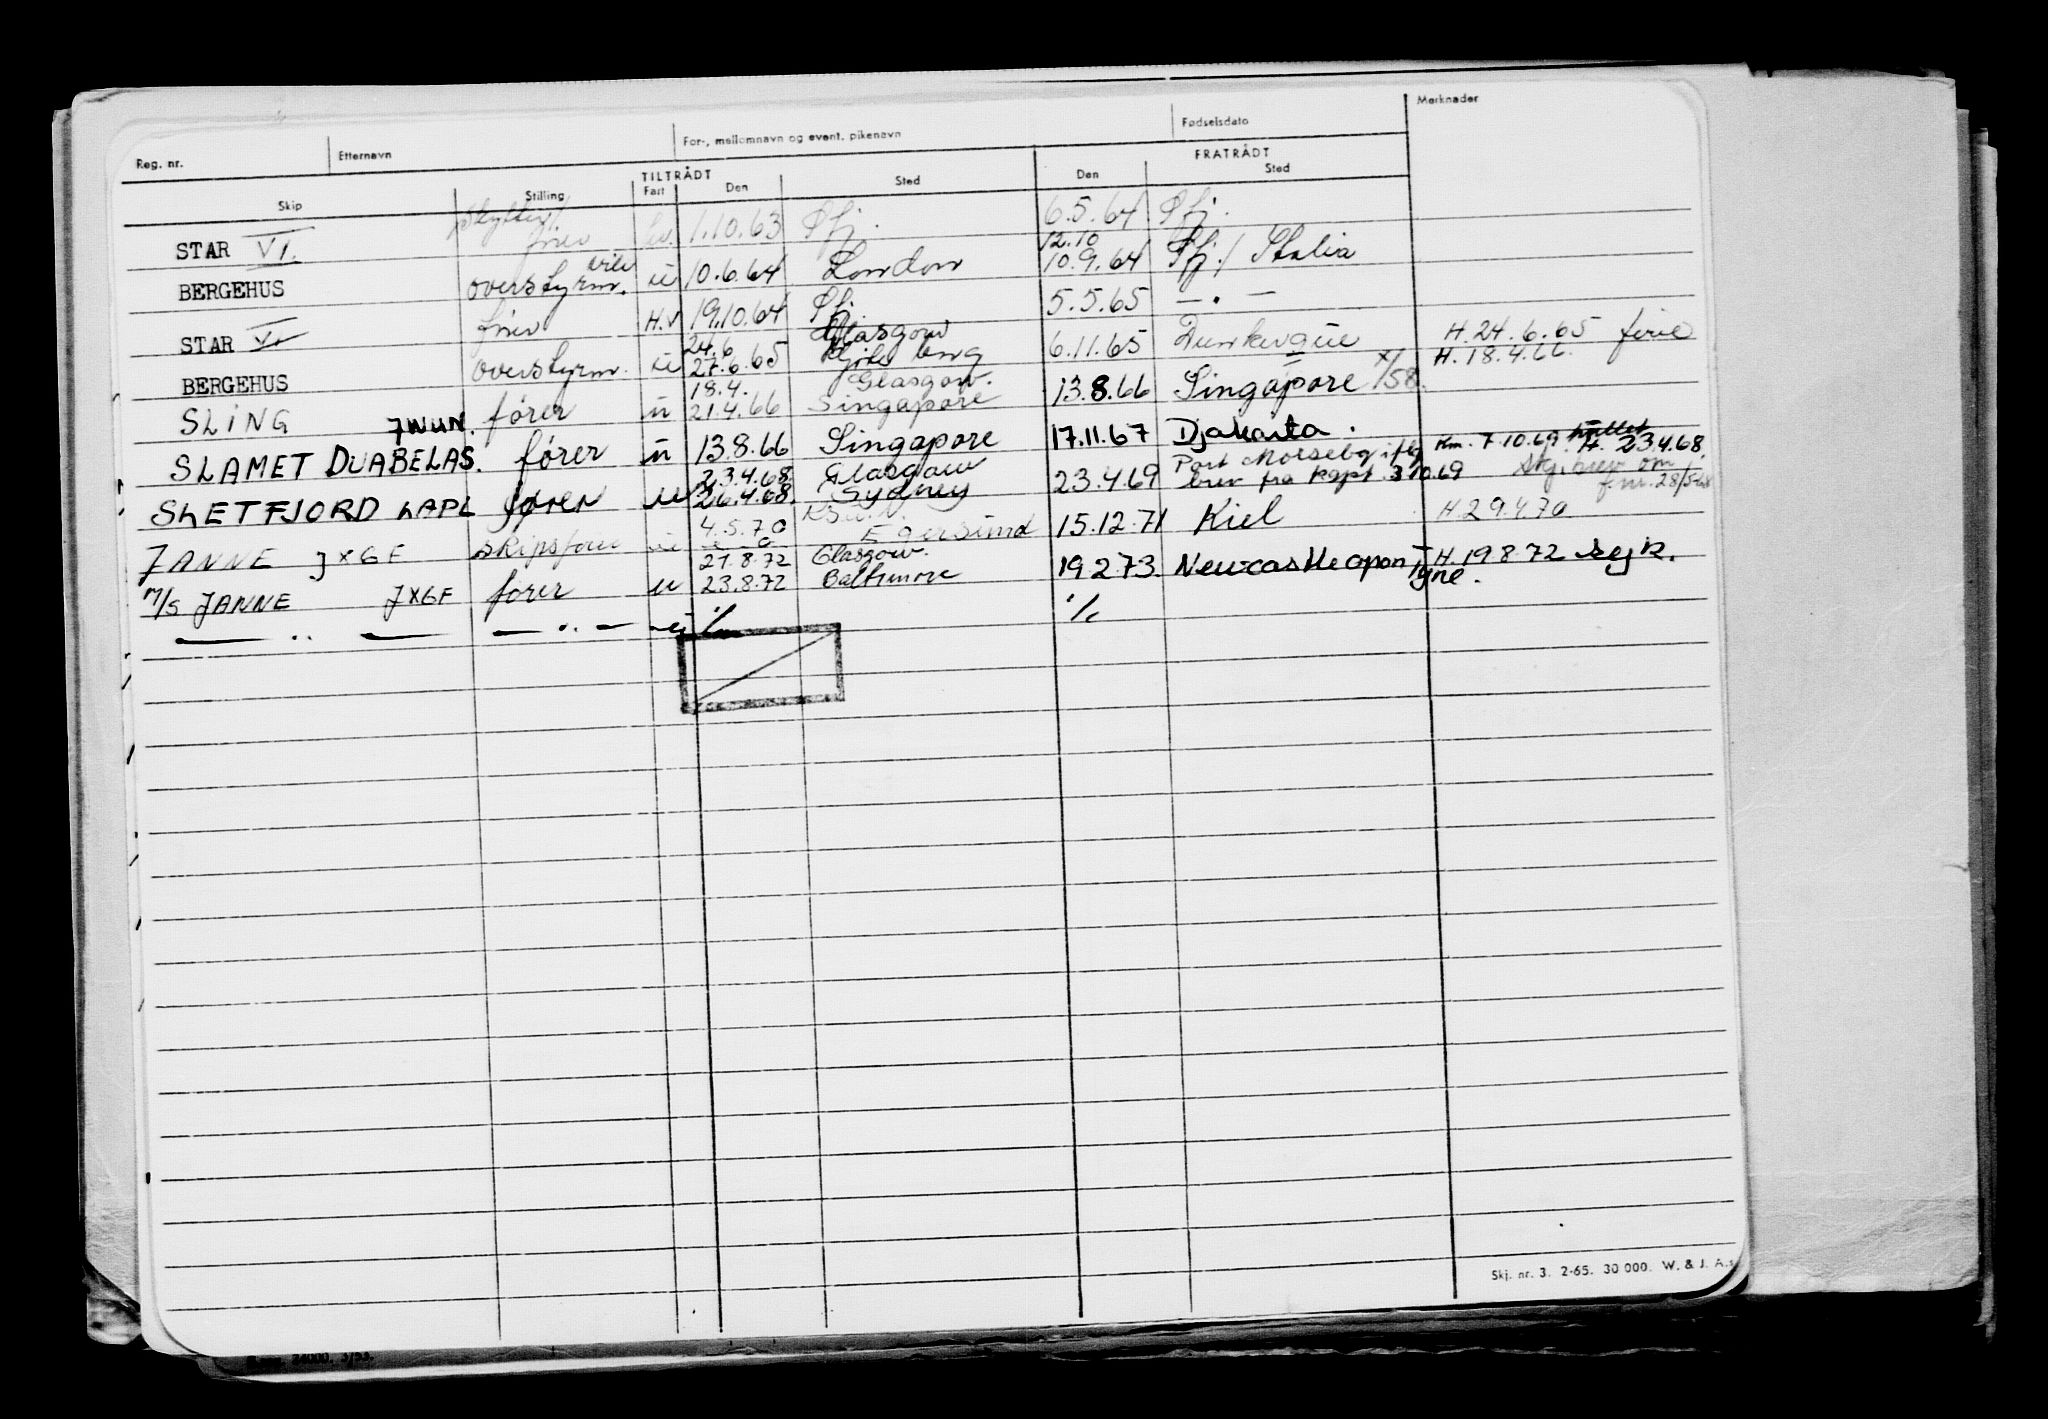 Reg. nr. Etternavn For-, mellomnavn og event. pikenavn Fødselsdato Merknader
TILTRÅDT FRATRÅDT
Skip Stilling Fart Den Sted Den Sted
STAR VI. skytter/ hv. 1.10.63 Sfj. 6.5.64 Sfj.
12.10
BERGEHUS overstyrm. u 10.6.64 London 10.9.64 Sfj./ Italia
STAR H.V 19.10.64 Sfj. 5.5.65 — . —
24.6 Glasgow
BERGEHUS overstyrm. u 27.6.65 6.11.65 Dunkerque H.24.6.65 ferie
18.4. Glasgow. H.18.4.66.
SLING fører u 21.4.66 Singapore 13.8.66 Singapore x/58.
SLAMET DUABELAS. JWUN. fører u 13.8.66 Singapore 17.11.67 Djakarta.
23.4.68 Glasgow Port Moresby iflg Km. 7.10.69 H. 23.4.68.
SLETFJORD LAPL fører u 26.4.68. Sydney 23.4.69 brev fra kapt. 3.10.69 Skj. brev om
f.nr. 28/5-68
JANNE JXGF 4.5.70 Egersund 15.12.71 Kiel H.29.4.70
21.8.72 Glasgow.
M/S JANNE JXGF fører u 23.8.72 Baltimore 19.2.73. Newcastle upon Tyne. H.19.8.72 sejk.
— .. — — .. — u ./. ./.
Skj. nr. 3. 2-65. 30 000. W. & J. A.s
24000. 3/53.